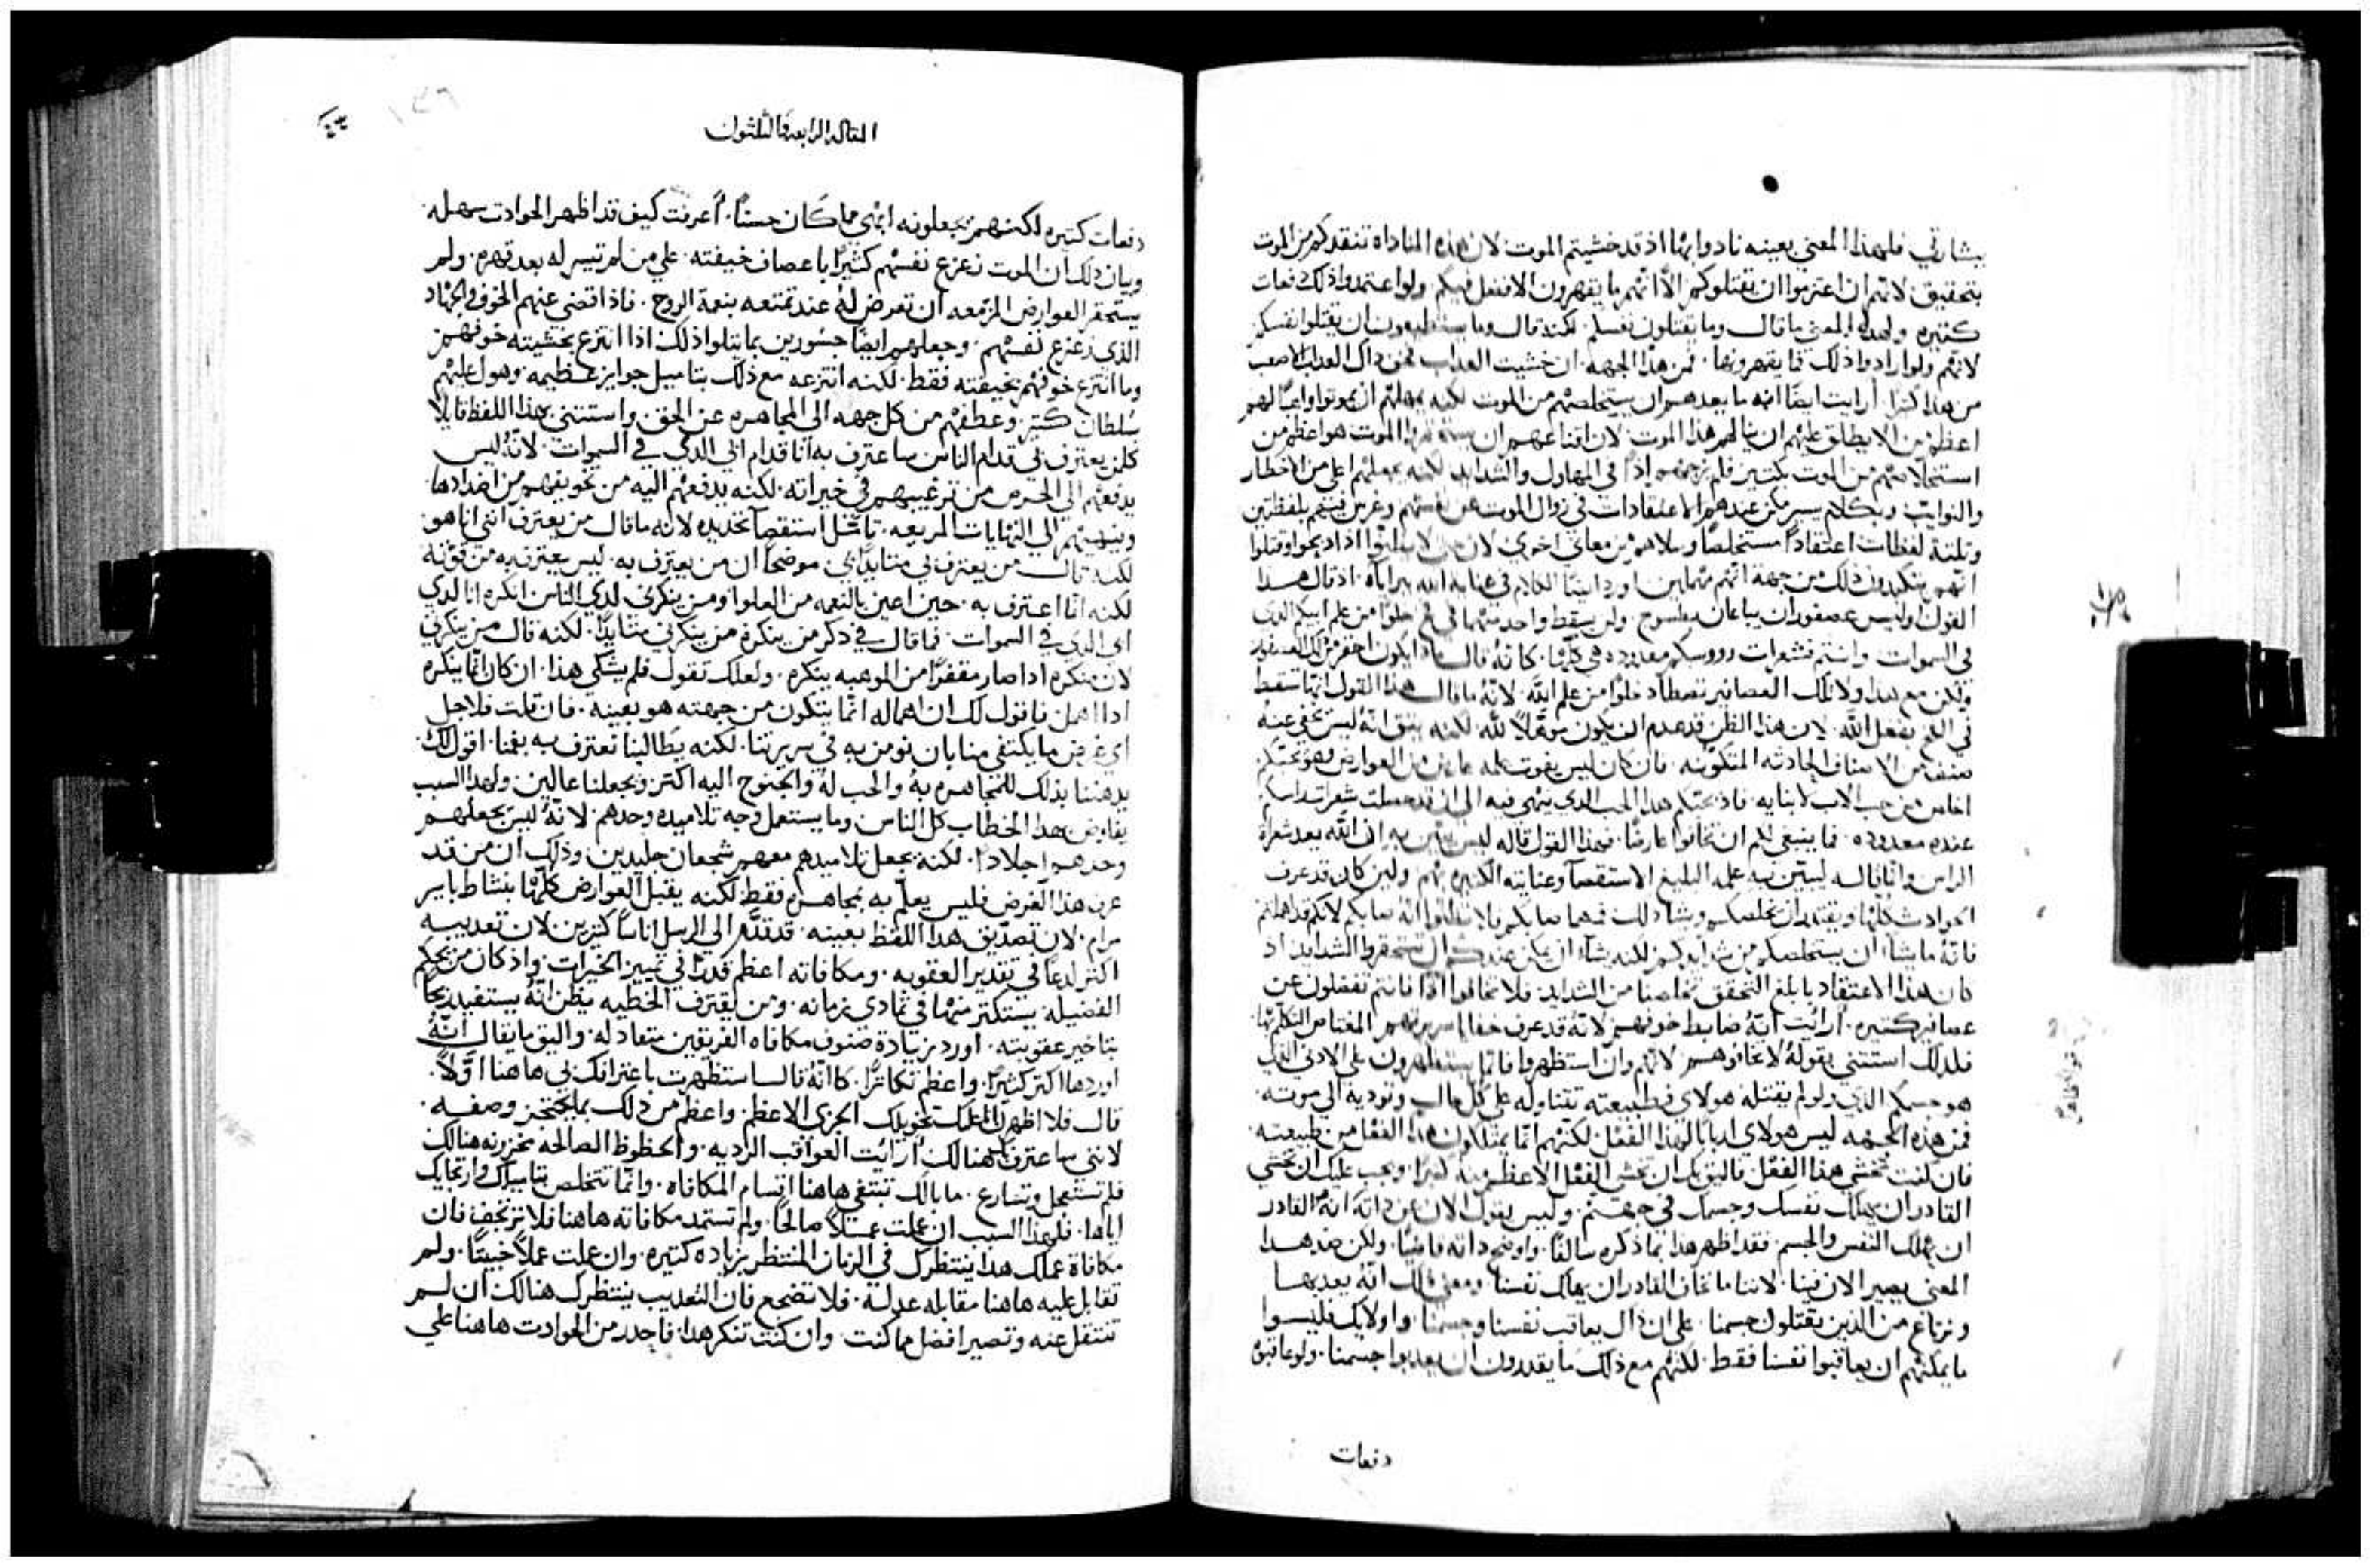 ببشارتي فلهذا المعني بعينه نادوا بهااذ قد خشيتم الموت لان هذه المناداه تنقدكم من الموت
بتحقيق لانهم ان اعتزموا ان يقتلوكم الا انهم ما يقهرون الافضل فيكم ولو اعتمدوا ذلك دفعات
كتيره ولهذا المعني ما قال وما يقتلون نفسكم لكنه قال وما يستطيعون ان يقتلوا نفسكم
لانهم ولو ارادوا ذلك فما يقهرونها فمن هذا الجهه ان خشيت العذاب فخف داك العداب الاصعب
من هدا كتيرا أرايت ايضا انه ما يعدهم ان يستخلصهم من الموت لكنه يمهلهم ان يموتوا واهبا لهم
اعظم من الا يطلق عليهم ان ينالهم هذا الموت لان اقناعهم ان يستحقروا الموت هو اعظم من
استخلاصهم من الموت بكتير فلم يزجهم اذا في المهاول والشدايد لكنه يجعلهم اعلي من الاخطار
والنوايب وبكلام يسير مكن عندهم الاعتقادات في زوال الموت عن انفسهم وغرس فيهم بلفظتين
وتلتة لفظات اعتقادا مستخلصا وسلاهم من معاني اخري لان حتي لا يظنوا اذا ديحوا وقتلوا
انهم يتكبدون ذلك من جهة انهم مهملين اورد ايضا الكلام في عناية الله بيراياه اذ قال هدا
القول اوليس عصفوران يباعان بفلسوح ولن يسقط واحد منهما في فخ خلوا من علم ابيكم الدى
في السموات وانتم فشعرات رووسكم معدوده هي كلها كانه قال مادا يكون احقر من تلك العصافير
ولكن مع هدا ولا تلك العصافير تصطاد خلوا من علم الله لانه ما قال هدا القول انها تسقط
في الفخ بفعل الله لان هذا الظن قد عدم ان يكون موهلا لله لكنه بنق انه ليس يخفي عنه
صنف من الاصناف الحادثه المتكونه فان كان ليس يفوت علمه عارض من العوارض وهو يحبكم
اخلص من حب الاب لابنايه فاذ يحبكم هدا الحب الدي ينهي فيه الى ان قد حصلت شعرات راسكم
عنده معدوده فما ينبغي لكم ان تخافوا عارضا فهذا القول قاله ليس يبين به ان الله يعد شعرات
الراس وانما قاله ليبين به علمه البليغ الاستقصا وعنايته الكتيره بهم ولين كان قد عرف
الحوادث كلها ويقتدر ان يخلصكم ويشا دلك فمهما صابكم فلا تظنوا انه صابكم لانكم قد اهملتم
فانه ما يشاء ان يستخلصكم من شدايدكم لكنه يشاء ان يمكن عندكم ان تستحقروا الشدايد اذ
كان هذا الاعتقاد بابلغ التحقق تخلصنا من الشدايد فلا تخافوا اذا فانتم تفضلون عن
عصافير كتيره أرايت انه ضابط خوفهم لانه قد عرف خفايا سريرتهم المغتاص التكلم بها
فلدلك استتني بقوله لا تخافوهم لانهم وان استظهروا فانما يستظهرون على الادني الذي
هو جسمكم الذي ولو لم يقتله هولاي فطبيعته تتناوله علي كل حال وتوديه الي موته
فمن هذه الجهه ليس هولاي اربابا لهذا الفعل لكنهم انما يمتلكون هذا الفعل من طبيعته
فان كنت تخشي هذا الفعل فاليق بك ان تخشي الفعل الاعظم منه كتيرا ويجب عليك ان تخشي
القادر ان يهلك نفسك وجسمك في جهنم وليس يقول الان عن داته انه القادر
ان يهلك النفس والجسم فقد اظهر هدا بما ذكره سالفا واوضح داته قاضيا ولكن ضد هدا
المعني يصير الان فينا لاننا ما نخاف القادر ان يهلك نفسنا ومعني ذلك انه يعدبها
ونرتاع من الذين يقتلون جسمنا علي ان ذاك يعاقب نفسنا وجسمنا واولايك فليسوا
ما يمكنهم ان يعاقبوا نفسنا فقط لكنهم مع ذلك ما يقدرون ان يعدبوا جسمنا ولو عاقبوه
دفعات
المقاله الرابعه والثلثون
دفعات كتيره لكنهم يجعلونه ابهى مما كان حسنا أعرفت كيف قد اظهر الحوادث سهله
وبيان ذلك ان الموت زعزع نفسهم كثيرا باعصاف خيفته علي من لم تيسر له بعد قهره ولم
يستحقر العوارض المزمعه ان تعرض له عند تمتعه بنعمة الروح فاذ اقصى عنهم الخوف والجهاد
الذي زعزع نفسهم وجعلهم ايضا جسورين بما يتلوا ذلك اذا انتزع بخشيته خوفهم
وما انتزع خوفهم بخيفته فقط لكنه انتزعه مع ذلك بتاميل جوايز عظيمه وهول عليهم
سلطان كتير وعطفهم من كل جهه الى المجاهره عن الحق واستتني بهذا اللفظ قايلا
كلمن يعترف بي قدام الناس ساعترف به انا قدام ابي الدي في السموات لانه ليس
يدفعهم الي الحرص من ترغيبهم في خيراته لكنه يدفعهم اليه من تخويفهم من اضدادها
وينتهي بهم الي النهايات المريعه تامل استقصآ تحديده لانه ما قال من يعترف انني انا هو
لكنه قال من يعترف بي متايدا بي موضحا ان من يعترف به ليس يعترف به من قوته
لكنه انما اعترف به حين اعين بالنعمه من العلوا ومن ينكرني لدي الناس انكره انا لدي
ابي الذي في السموات فما قال في دكر من ينكره من ينكرني متايدا لكنه قال من ينكرني
لان منكره ادا صار مقفرا من الموهبه ينكره ولعلك تقول فلم يشكي هذا ان كان انما ينكره
ادا اهمل فاقول لك ان اهماله انما يتكون من جهته هو بعينه فان قلت فلاجل
اي غرض ما يكتفي منا بان نومن به في سريرتنا لكنه يطالبنا نعترف به بفمنا اقول لك
يدهننا بذلك للمجاهره به والحب له والجنوح اليه اكتر ويجعلنا عالين ولهدا السبب
يفاوض بهدا الخطاب كل الناس وما يستعمل وجه تلاميده وحدهم لانه ليس يجعلهم
وحدهم اجلادا لكنه يجعل تلاميدهم معهم شجعان جليدين وذلك ان من قد
عرف هذا الغرض فليس يعلم به بمجاهره فقط لكنه يقتبل العوارض كلها بنشاط بايسر
مرام لان تصديق هدا اللفظ بعينه قد قدم الي الرسل اناسا كتيرين لان تعديبه
اكتر لدعا في تقدير العقوبه ومكافاته اعظم قدرا في تمييز الخيرات واذ كان من يحكم
الفضيله يستكتر منها في تمادي زمانه ومن يقترف الخطيه يظن انه يستفيد ربحا
بتاخير عقوبته اورد زيادة صنوف مكافاه الفريقين متعادله واليق ما يقال انه
اوردها اكتر كثيرا واعظم تكاثرا كانه قال استظهرت باعترافك بي هاهنا اولا
قال فلا اظهرن انا عليك بتخويلك الجزئ الاعظم واعظم من ذلك بما يحتجز وصفه
لانني ساعترف بك هنالك أرايت العواقب الرديه والحظوظ الصالحه مخزونه هنالك
فلم تستعجل وتسارع ما بالك تبتغي هاهنا اقسام المكافاه وانما تتخلص بتاميلك وارتجايك
اياها فلهدا السبب ان عملت عملا صالحا ولم تستمد مكافاته هاهنا فلا ترتجف فان
مكافاة عملك هدا ينتظرك في الزمان المنتظر بزياده كتيره وان عملت عملا خبيثا ولم
تقابل عليه هاهنا مقابله عدله فلا تضجع فان التعديب ينتظرك هنالك ان لم
تنتقل عنه وتصير افضل مما كنت وان كنت تنكر هدا فاحدر من الحوادث هاهنا علي